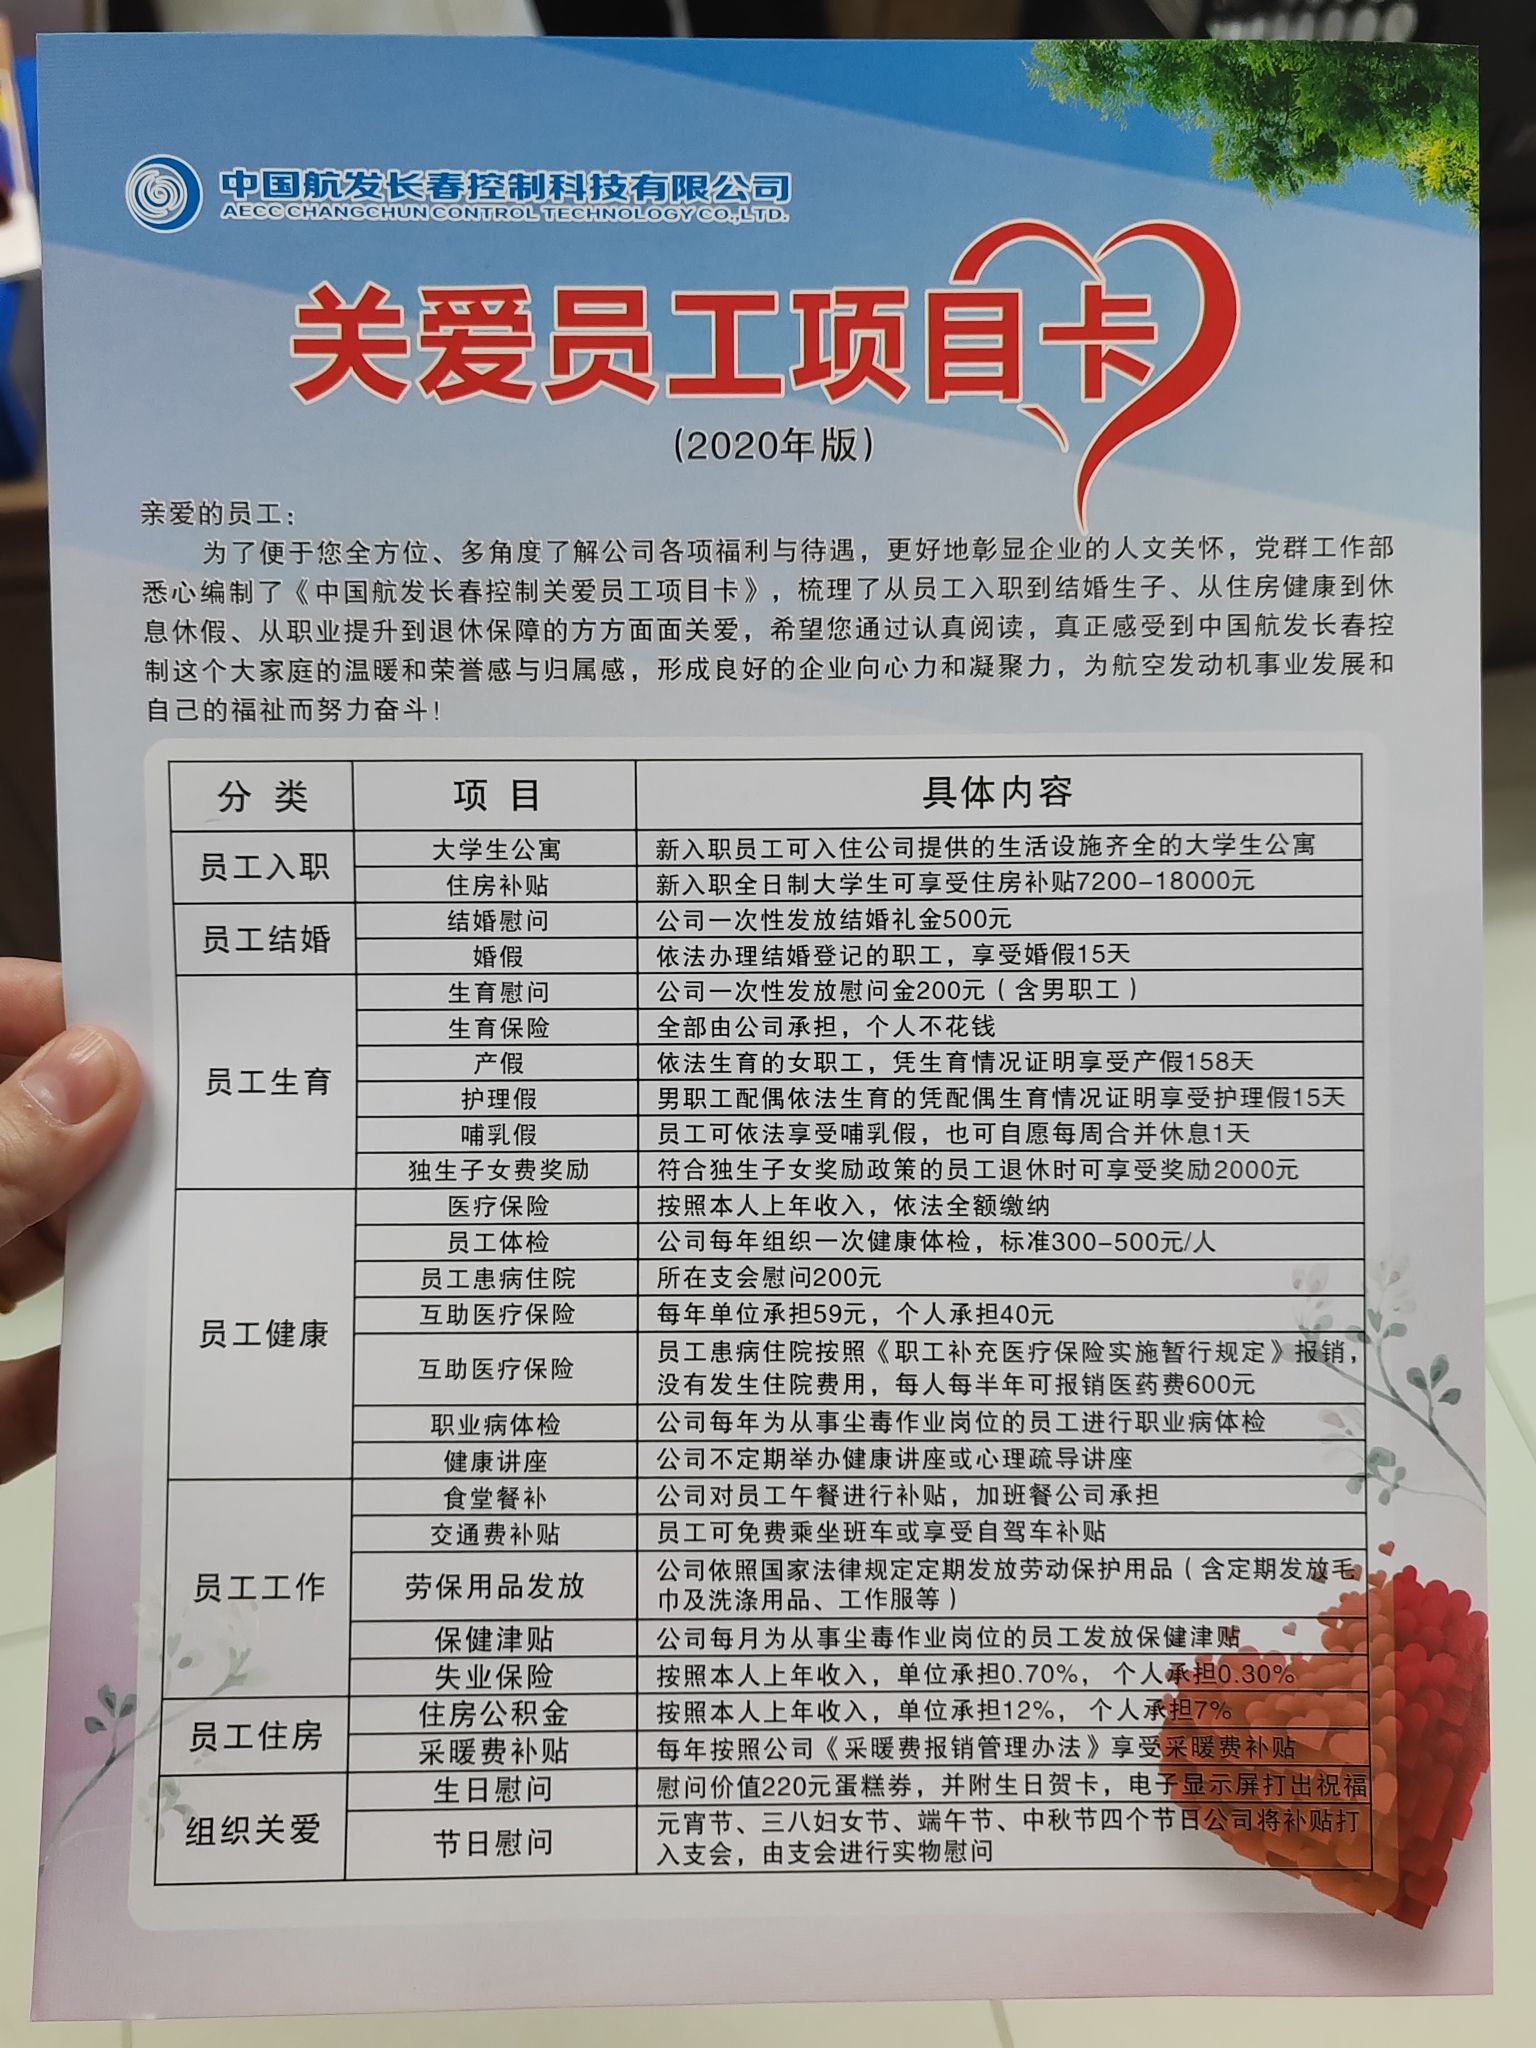 中国航发长春控制科技有限公司
AECC CHANGCHUN CONTROL TECHNOLOGY CO.,LTD.
关爱员工项目卡
(2020年版)
亲爱的员工:
为了便于您全方位、多角度了解公司各项福利与待遇，更好地彰显企业的人文关怀，党群工作部
悉心编制了《中国航发长春控制关爱员工项目卡》，梳理了从员工入职到结婚生子、从住房健康到休
息休假、从职业提升到退休保障的方方面面关爱，希望您通过认真阅读，真正感受到中国航发长春控
制这个大家庭的温暖和荣誉感与归属感，形成良好的企业向心力和凝聚力，为航空发动机事业发展和
自己的福祉而努力奋斗!
分 类 项 目 具体内容
员工入职
大学生公寓 新入职员工可入住公司提供的生活设施齐全的大学生公寓
住房补贴 新入职全日制大学生可享受住房补贴7200-18000元
员工结婚
结婚慰问 公司一次性发放结婚礼金500元
婚假 依法办理结婚登记的职工，享受婚假15天
员工生育
生育慰问 公司一次性发放慰问金200元（含男职工）
生育保险 全部由公司承担，个人不花钱
产假 依法生育的女职工，凭生育情况证明享受产假158天
护理假 男职工配偶依法生育的凭配偶生育情况证明享受护理假15天
哺乳假 员工可依法享受哺乳假，也可自愿每周合并休息1天
独生子女费奖励 符合独生子女奖励政策的员工退休时可享受奖励2000元
员工健康
医疗保险 按照本人上年收入，依法全额缴纳
员工体检 公司每年组织一次健康体检，标准300-500元/人
员工患病住院 所在支会慰问200元
互助医疗保险 每年单位承担59元，个人承担40元
互助医疗保险 员工患病住院按照《职工补充医疗保险实施暂行规定》报销，
没有发生住院费用，每人每半年可报销医药费600元
职业病体检 公司每年为从事尘毒作业岗位的员工进行职业病体检
健康讲座 公司不定期举办健康讲座或心理疏导讲座
员工工作
食堂餐补 公司对员工午餐进行补贴，加班餐公司承担
交通费补贴 员工可免费乘坐班车或享受自驾车补贴
劳保用品发放 公司依照国家法律规定定期发放劳动保护用品（含定期发放毛
巾及洗涤用品、工作服等）
保健津贴 公司每月为从事尘毒作业岗位的员工发放保健津贴
失业保险 按照本人上年收入，单位承担0.70%，个人承担0.30%
员工住房
住房公积金 按照本人上年收入，单位承担12%，个人承担7%
采暖费补贴 每年按照公司《采暖费报销管理办法》享受采暖费补贴
组织关爱
生日慰问 慰问价值220元蛋糕券，并附生日贺卡，电子显示屏打出祝福
节日慰问 元宵节、三八妇女节、端午节、中秋节四个节日公司将补贴打
入支会，由支会进行实物慰问